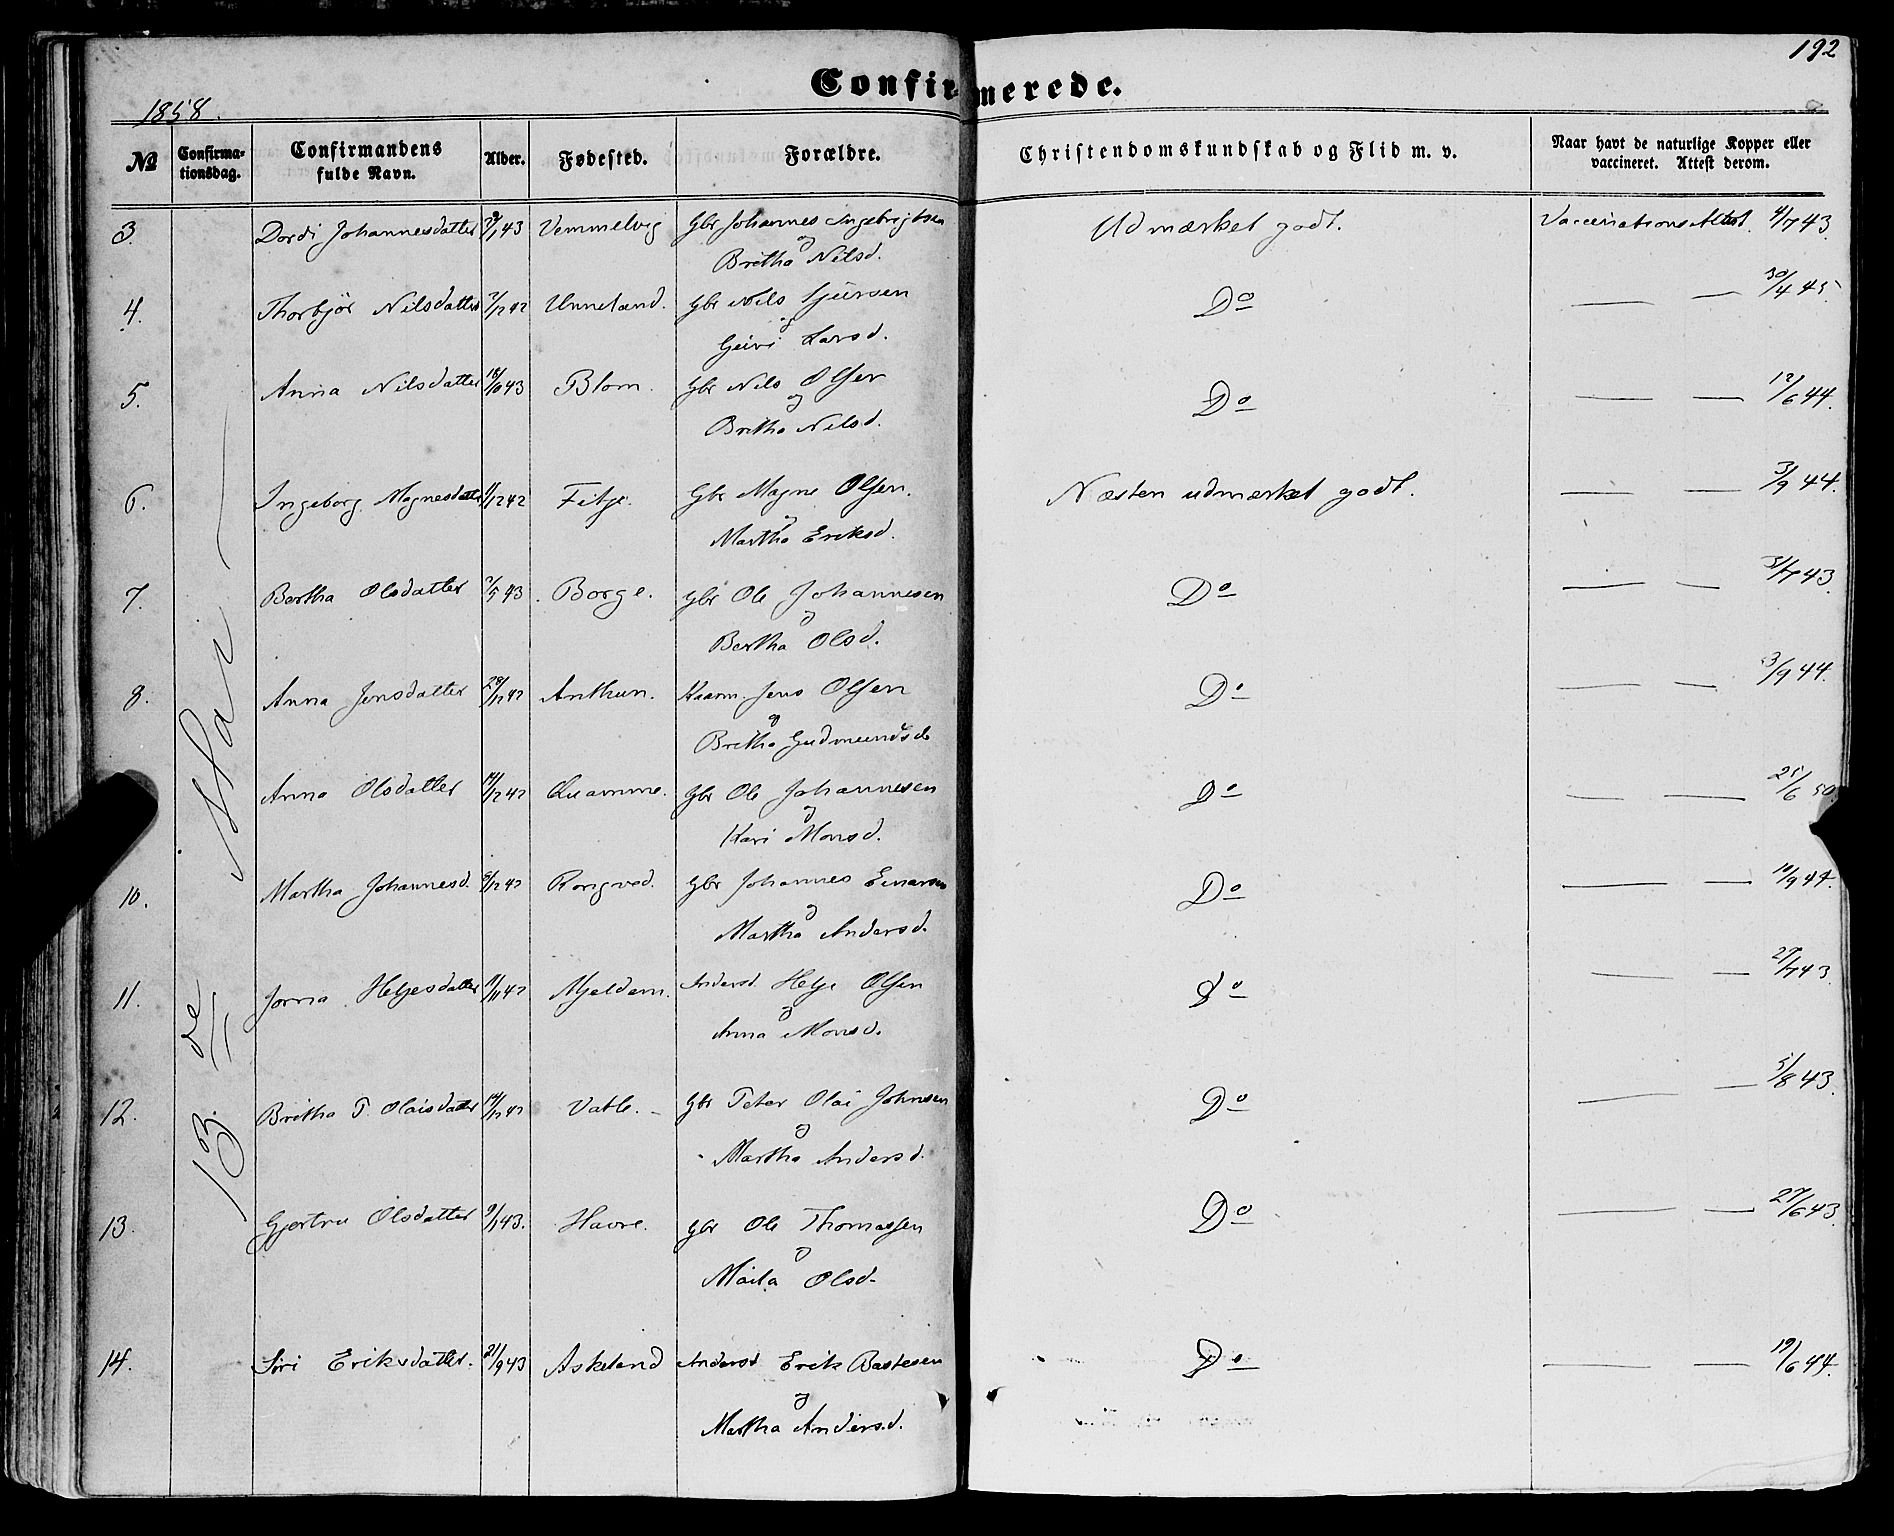 192
Confirmerede.
1858.
№ Confirmationsdag. Confirmandens fulde Navn. Alder. Fødested. Forældre. Christendomskundskab og Flid m. v. Naar havt de naturlige Kopper eller vaccineret. Attest derom.
13de Mai
3. Dordi Johannesdatter /1 43 Vemmelvig Gbr Johannes Ingebrigtsen Udmærket godt. Vaccinations Attest 4/7 43.
og
Britha Nilsd.
4. Thorbjør Nilsdatter 7/12 42 Unneland. Gbr Nils Sjursen Do — — 30/4 45.
og
Guri Larsd.
5. Anna Nilsdatter 18/10 43 Blom. Gbr Nils Olsen Do — — 12/6 44.
og
Britha Nilsd.
6. Ingeborg Magnesdatter /12 42 Fitje. Gbr Magne Olsen. Næsten udmærket godt. — — 3/9 44.
og
Martha Eriksd.
7. Bertha Olsdatter 2/5 43 Borge. Gbr Ole Johannesen Do — — 3/7 43.
og
Bertha Olsd.
8. Anna Jensdatter 28/12 42 Anthun. Huusm. Jens Olsen Do — — 3/9 44.
og
Britha Gudmundsd
Anna Olsdatter 14/12 42 Quamme. Gbr Ole Johannesen Do — — 25/6 50.
og
Kari Monsd.
10. Martha Johannesd. /12 42 Rongved. Gbr Johannes Einarsen Do — — 10/9 44.
og
Martha Andersd.
11. Jorna Heljesdatter 11/11 42 Mjeldem. Andersd. Helje Olsen Do — — 27/7 43.
og
Anna Monsd.
12. Britha P. Olaisdatter 14/12 42 Vatle. Gbr Peter Olai Johnsen Do — — 5/8 43.
og
Martha Andersd.
13. Gjertru Olsdatter 9/1 43. Havre. Gbr Ole Thomassen Do — — 27/6 43.
og
Maila Olsd.
14. Siri Eriksdatter. 21/9 43 Askeland Andersd Erik Bastesen Do — — 19/6 44.
og
Martha Andersd.